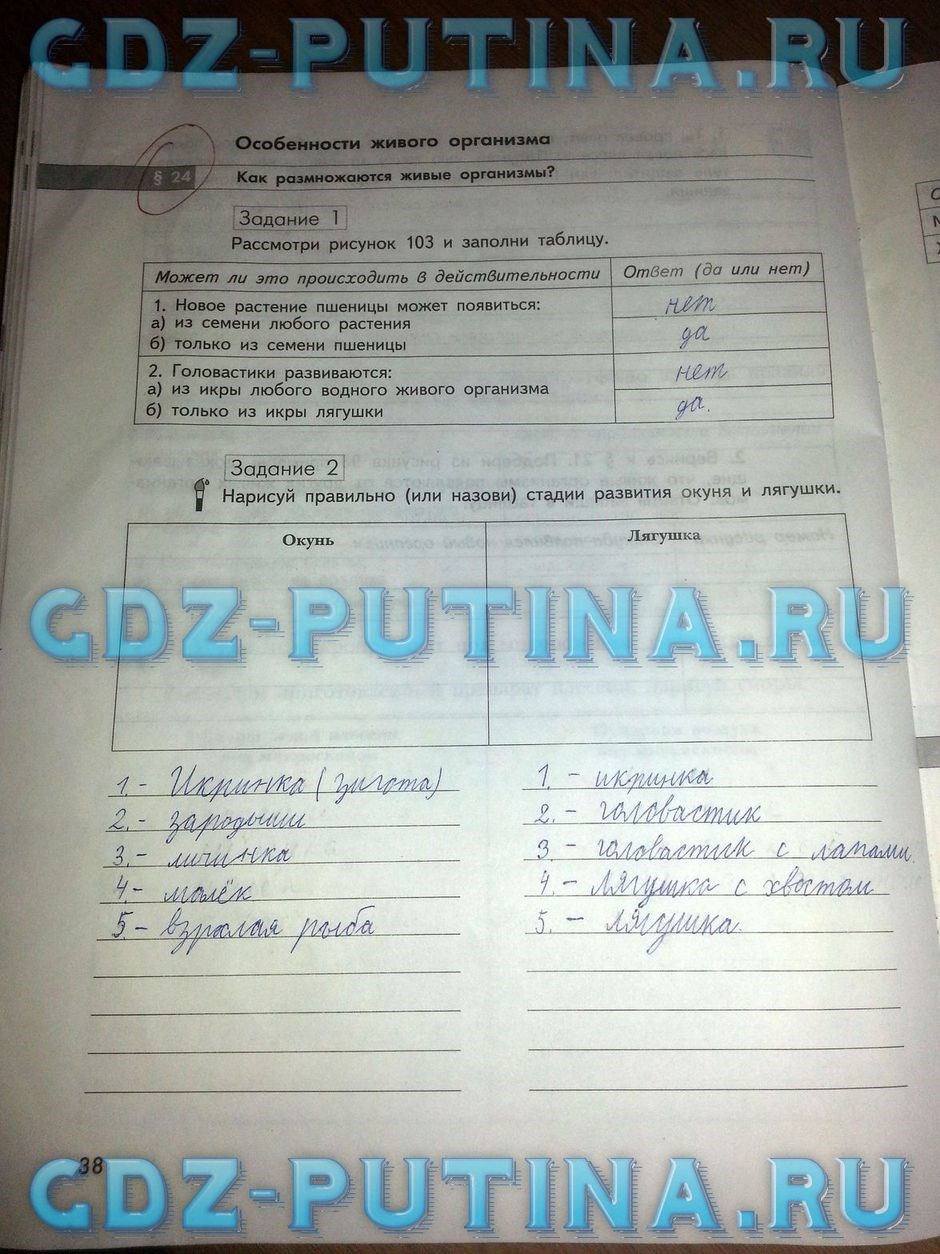 GDZ-PUTINA.RU
Особенности живого организма
§ 24
Как размножаются живые организмы?
Задание 1
Рассмотри рисунок 103 и заполни таблицу.
Может ли это происходить в действительности Ответ (да или нет)
1. Новое растение пшеницы может появиться:
а) из семени любого растения нет
б) только из семени пшеницы да
2. Головастики развиваются:
а) из икры любого водного живого организма нет
б) только из икры лягушки да.
Задание 2
Нарисуй правильно (или назови) стадии развития окуня и лягушки.
Окунь Лягушка
GDZ-PUTINA.RU
1.- Икринка (зигота) 1. - икринка
2.- зародыш 2. - головастик
3.- личинка 3 - головастик с лапами.
4.- малёк 4. - Лягушка с хвостом
5.- взрослая рыба 5. - лягушка.
38
GDZ-PUTINA.RU